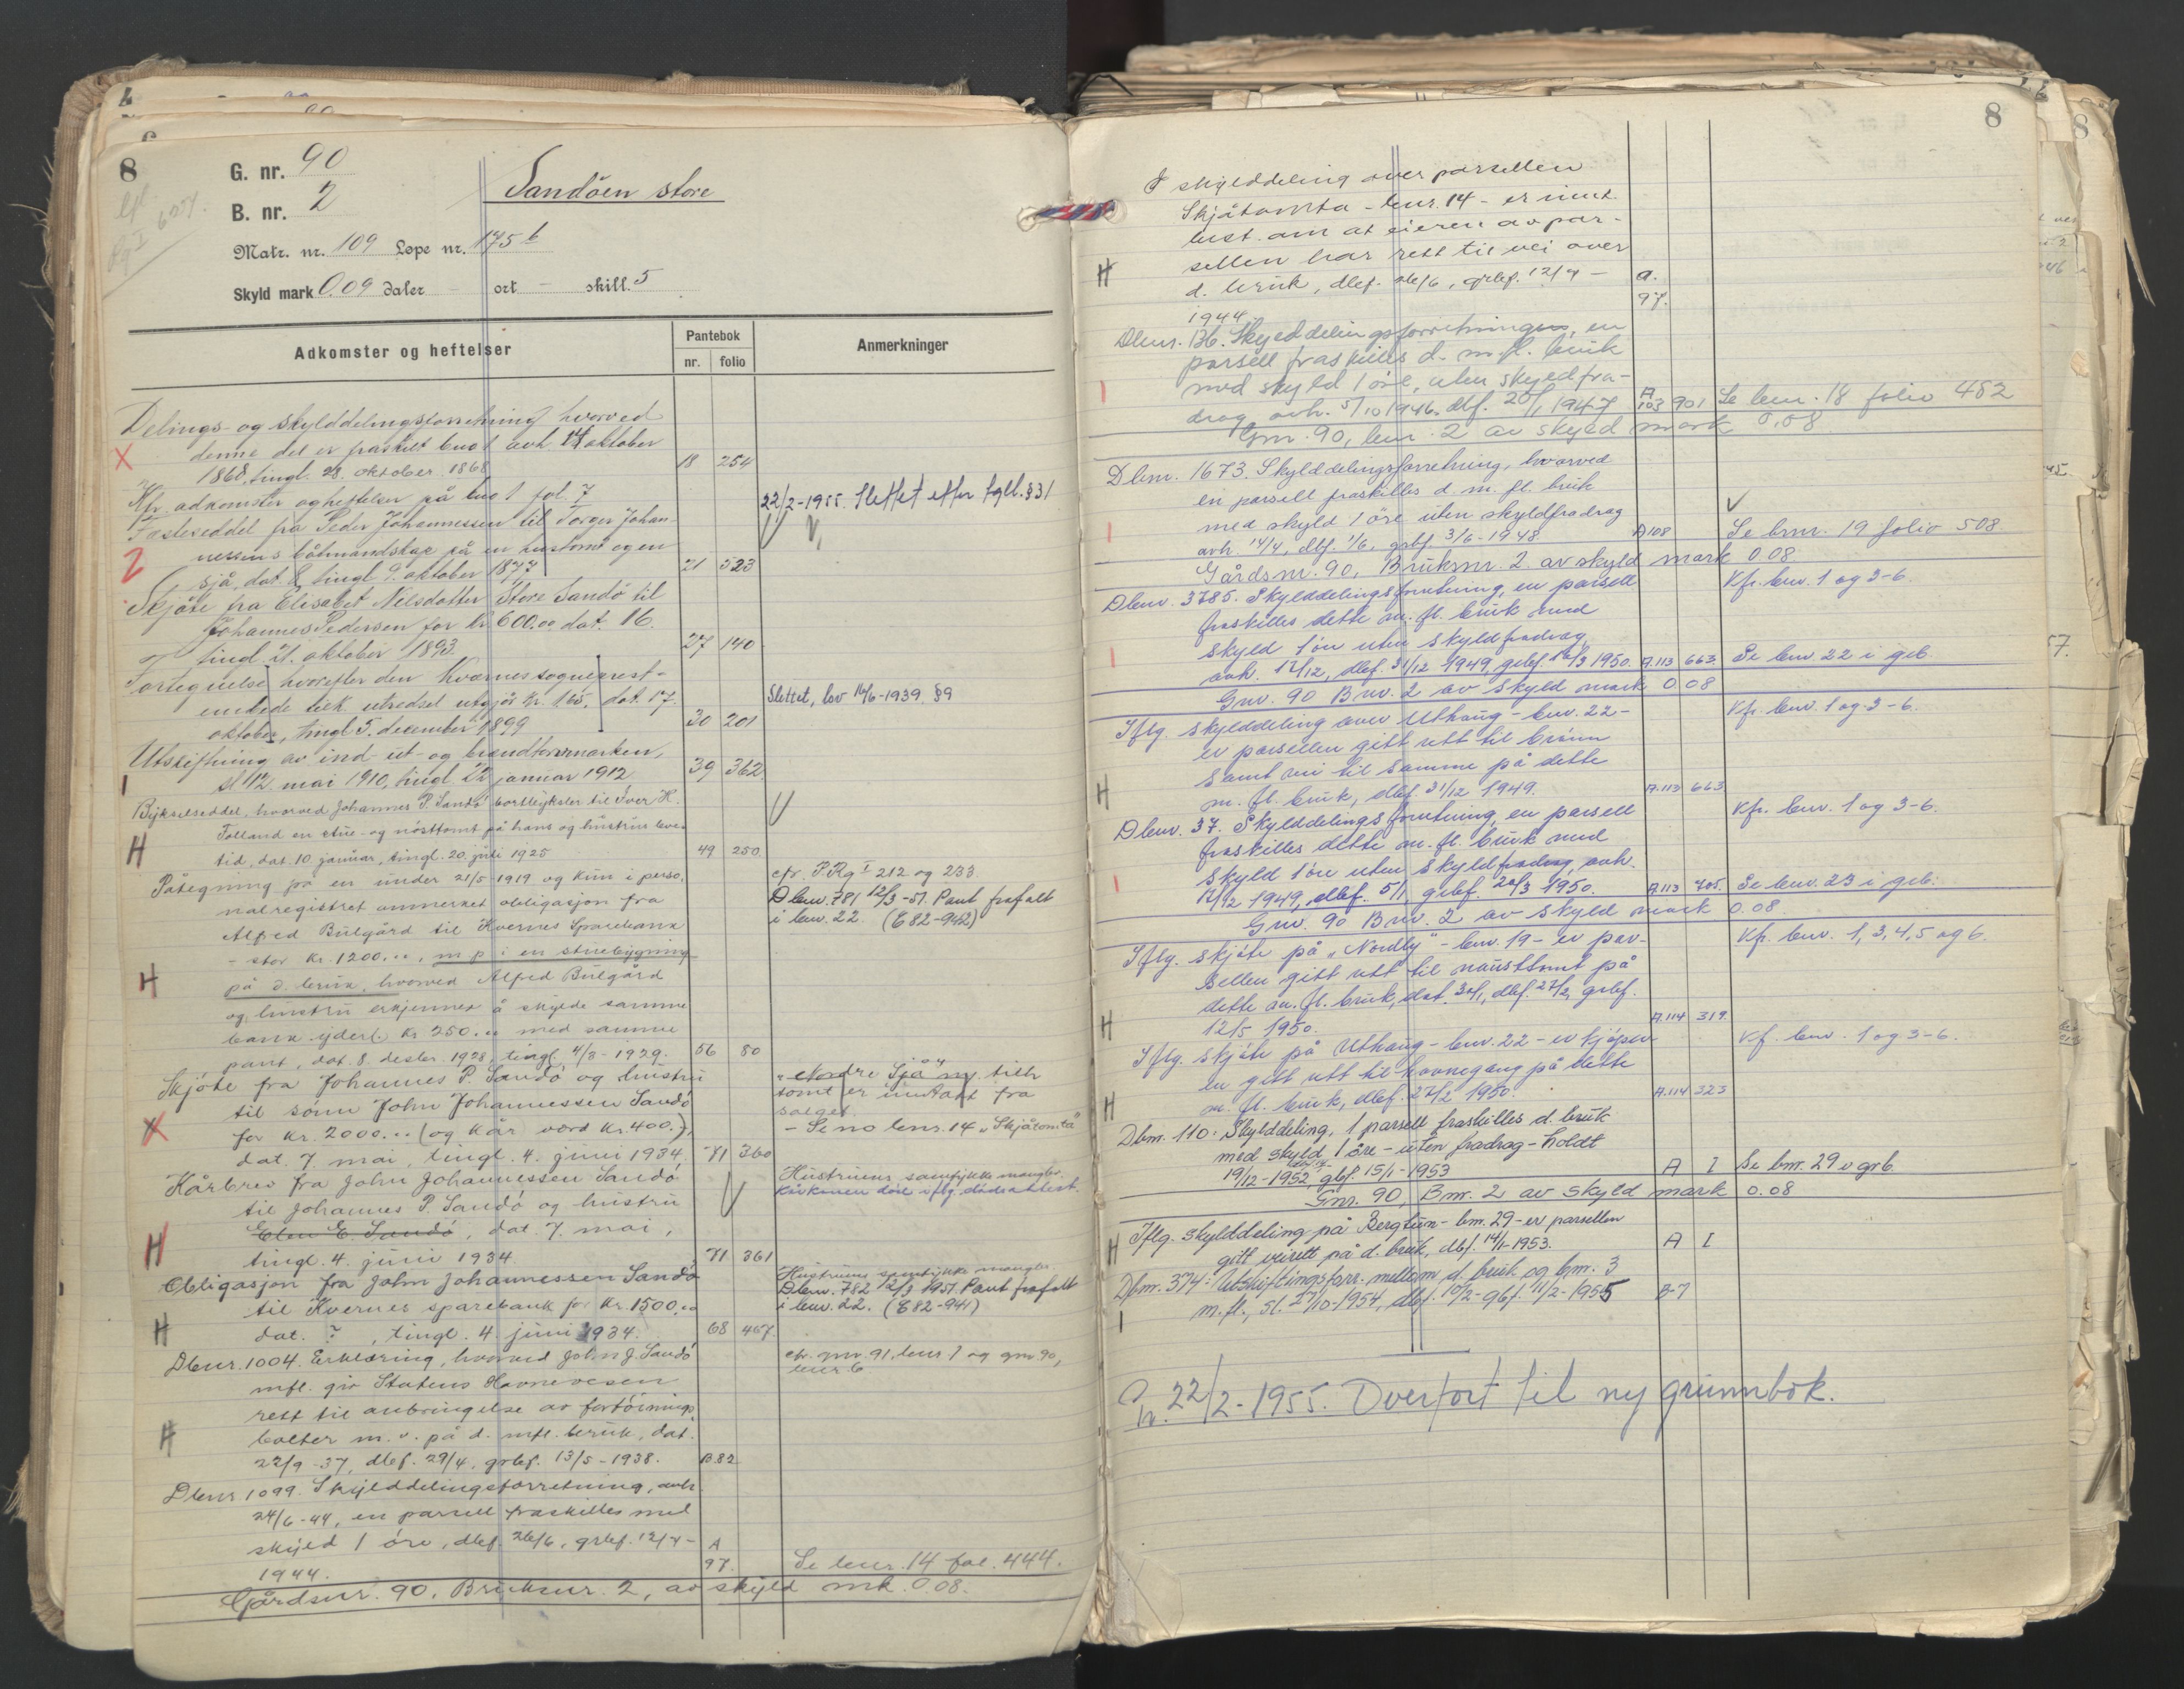 8
G. nr. 90
B. nr. 2
Sandöen store
Matr. nr. 109 Løpe nr. 175 b
Skyld mark 0.09 daler - ort - skill. 5
Adkomster og heftelser
Pantebok
nr. folio
Anmerkninger
Delings- og skylddelingsforretning hvorved
denne del er fraskilt bno 1 avh 14 oktober
1868, tingl. 28. oktober 1868 18 254
Kfr. adkomster og heftelser på bno 1 fol. 7
Festeseddel fra Peder Johannessen til Torger Johan- 22/2-1955. Slettet efter tgll. § 31
nessens båtmandskap på en hustomt og en
sjå, dat. 8, tingl 9. oktober 1877 21 523
Skjöte fra Elisabet Nilsdatter Store Sandö til
Johannes Pedersen for kr 600.00 dat. 16.
tingl. 21. oktober 1893. 27 140
Fortegnelse hvorefter den Kvernes sogneprest-
embede tilk. utredsel utgjör kr. 1.65, dat. 17. Slettet, lov 16/6-1939. § 9
oktober, tingl 5. december 1899 30 201
Utskiftning av ind ut- og brændtorvmarken,
sl 12. mai 1910, tingl. 22 januar 1912 39 362
Bykselseddel, hvorved Johannes P. Sandö bortbyksler til Iver H.
Folland en stue- og nösttomt på hans og hustrus leve-
tid, dat. 10 januar, tingl. 20. juli 1925 49 250
Påtegning på en under 21/5 1919 og kun i perso- cfr. P.Rg I 212 og 233.
nalregistret anmerket obligasjon fra Dbnr. 781 12/3-51. Pant frafalt
Alfred Bülgård til Kvernes Sparebank i bnr. 22. (E 82-942)
- stor kr. 1200.00, m. p. i en stuebygning
på d. bruk, hvorved Alfred Bülgård
og hustru erkjenner å skylde samme
bank yderl. kr 250.00 med samme
pant, dat. 8. desbr. 1928, tingl. 4/3-1929. 56 80
Skjöte fra Johannes P. Sandö og hustru "Nordre Sjå" m tilh
til sönn John Johannessen Sandö tomt er unntatt fra
for kr. 2000.00 (og kår verd kr. 400.-), salget.
dat. 7. mai, tingl. 4. juni 1934. 71 360 - Se no bnr. 14 "Skjåtomta"
Kårbrev fra John Johannessen Sandö Hustruens samtykke mangler.
til Johannes P. Sandö og hustru Kårkonen död iflg. dödsattest.
Elen E. Sandö, dat. 7. mai,
tingl. 4. juni 1934 71 361
Obligasjon fra John Johannessen Sandö Hustruens samtykke mangler.
til Kvernes sparebank for kr. 1500.00 Dbnr. 782 12/3 1951 Pant frafalt
dat. ?, tingl. 4. juni 1934. 68 467 i bnr. 22. (E 82-941)
Dbnr. 1004. Erklæring, hvorved John J. Sandö cfr. gnr. 91, bnr 1 og gnr 90,
mfl. gir Statens Havnevesen bnr 6
rett til anbringelse av fortöinings-
bolter m. v. på d. mfl. bruk, dat.
22/9-37, dbf. 29/4, grbf. 13/5-1938. B.82
Dbnr 1099. Skylddelingsforretning, avh
24/6-44, en parsell fraskilles med
skyld 1 öre, dbf. 26/6, grbf. 12/7- A
1944. 97. Se bnr. 14 fol. 444.
Gårdsnr. 90, Bruksnr. 2, av skyld mk. 0.08.
8
I skylddeling over parsellen
Skjåtomta - bnr. 14 - er innt.
best. om at eieren av par-
sellen har rett til vei over
d. bruk, dbf. 26/6, grbf. 12/7- A.
1944. 97.
Dbnr. 136. Skylddelingsforretningen, en
parsell fraskilles d. m. fl. bruk
med skyld 1 öre, uten skyldfra-
drag, avh. 5/10 1946, dbf. 20/1 1947 A 103 901 Se bnr. 18 folio 482
Gnr. 90, bnr. 2 av skyld mark 0,08.
Dbnr. 1673. Skylddelingsforretning, hvorved
en parsell fraskilles d. m. fl. bruk
med skyld 1 öre uten skyldfradrag
avh. 14/4, dbf. 1/6, grbf. 3/6-1948 A 108 Se bnr. 19 folio 508.
Gårdsnr. 90, Bruksnr. 2. av skyld mark 0.08.
Dbnr. 3785. Skylddelingsforretning, en parsell Kfr. bnr. 1 og 3-6.
fraskilles dette m. fl. bruk med
skyld 1 öre uten skyldfradrag,
avh. 12/12, dbf. 31/12 1949, grbf. 16/3 1950. A.113 663. Se bnr. 22 i grb.
Gnr. 90 Bnr. 2 av skyld mark 0.08
Iflg. skylddeling över Uthaug - bnr. 22 - Kfr. bnr. 1 og 3-6.
er parsellen gitt rett til brönn
samt vei til samme på dette
m. fl. bruk, dbf. 31/12 1949. A.113 663
Dbnr. 37. Skylddelingsforretning, en parsell Kfr. bnr. 1 og 3-6.
fraskilles dette m. fl. bruk med
skyld 1 öre uten skyldfradrag, avh.
12/12 1949, dbf. 5/1, grbf. 20/3 1950. A.113 705. Se bnr. 23 i grb.
Gnr. 90 Bnr. 2 av skyld mark 0.08.
Iflg. skjöte på "Nordly" - bnr. 19 - er par- Kfr. bnr. 1, 3, 4, 5 og 6.
sellen gitt rett til nausttomt på
dette m. fl. bruk, dat. 30/1, dbf. 27/2, grbf.
12/5 1950. A.114 319.
Iflg. skjöte på Uthaug - bnr. 22 - er kjöper- Kf. bnr. 1 og 3-6.
en gitt rett til havnegang på dette
m. fl. bruk, dbf. 27/2 1950. A.114 323
Dbnr. 110: Skylddeling, 1 parsell fraskilles d. bruk
med skyld 1 öre - uten fradrag - holdt
19/12-1952, grbf. 15/1-1953 A I Se bnr. 29 i grb.
Gnr. 90, Bnr. 2 av skyld mark 0.08
Iflg. skylddeling på Bergtun - bnr. 29 - er parsellen
gitt veirett på d. bruk, dbf. 14/1-1953. A I
Dbnr. 374: Utskiftingsforr. mellom d. bruk og bnr. 3
m. fl., sl. 27/10-1954, dbf. 10/2- gbf. 11/2-1955 B-7
22/2-1955. Overført til ny grunnbok.